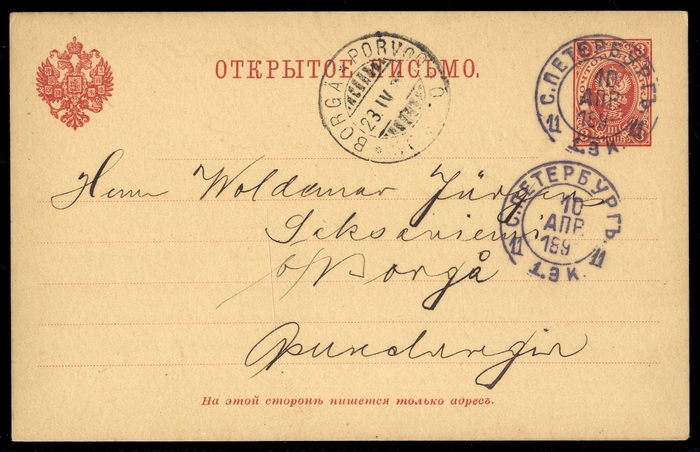 ОТКРЫТОЕ ПИСЬМО.
BORGÅ PORVOO
23 IV
С.ПЕТЕРБУРГЪ.
10
АПР
189
11 11
1.ЭК.
Herrn Woldemar Jürgens
b/ Borgå
Финляндія
С.ПЕТЕРБУРГЪ.
10
АПР
189
11 11
1.ЭК.
На этой сторонѣ пишется только адресъ.